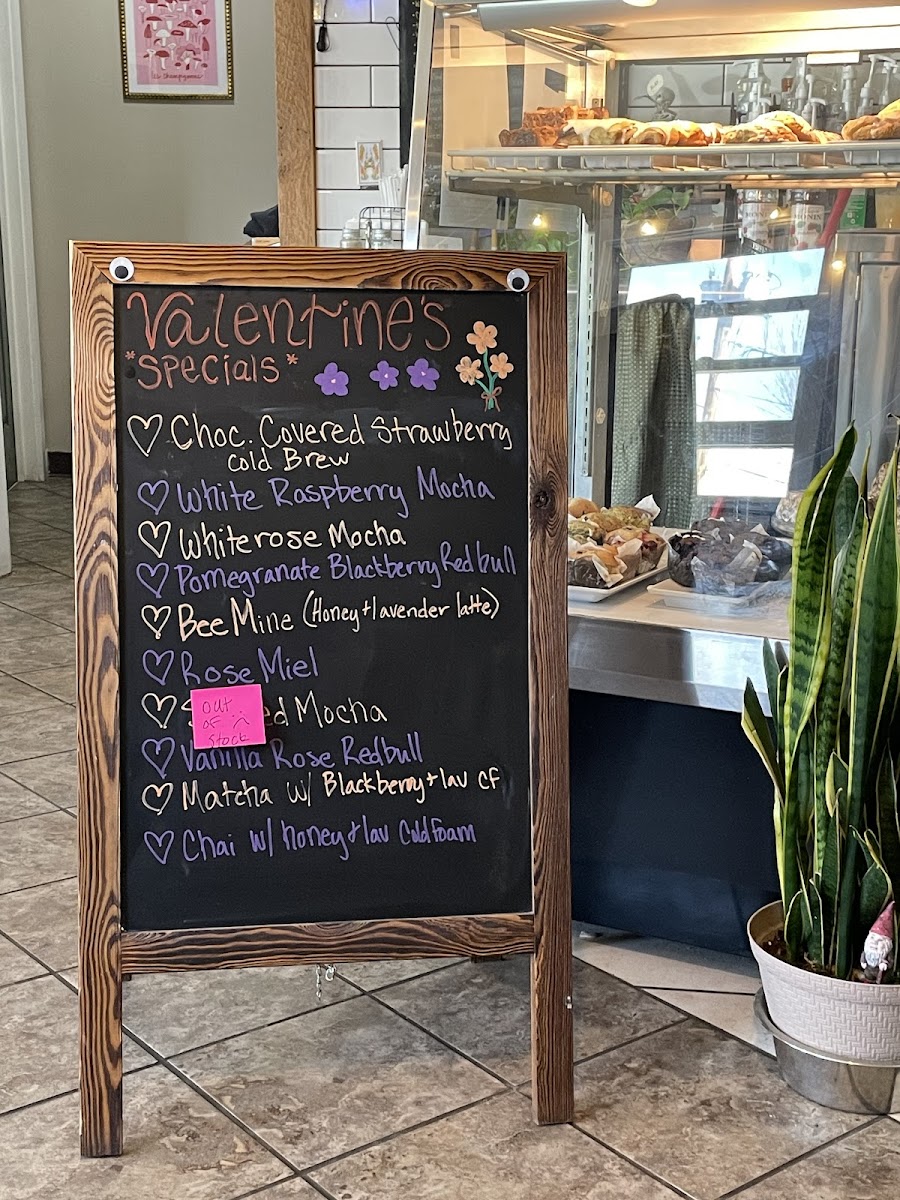 Valentine's
*Specials*
Choc. Covered Strawberry
Cold Brew
White Raspberry Mocha
Whiterose Mocha
Pomegranate Blackberry Redbull
Bee Mine (Honey + lavender latte)
Rose Miel
ed Mocha
out
of :(
stock
Vanilla Rose Redbull
Matcha w/ Blackberry + lav cf
Chai w/ honey + lav Cold Foam